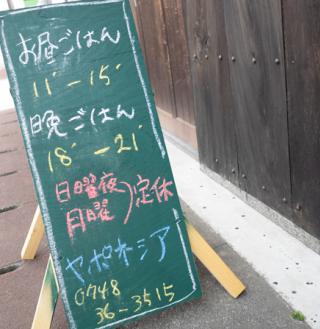 お昼ごはん
11'-15'
晩ごはん
18'-21'
日曜夜
月曜)定休
ヤポネシア
0748
36-3515